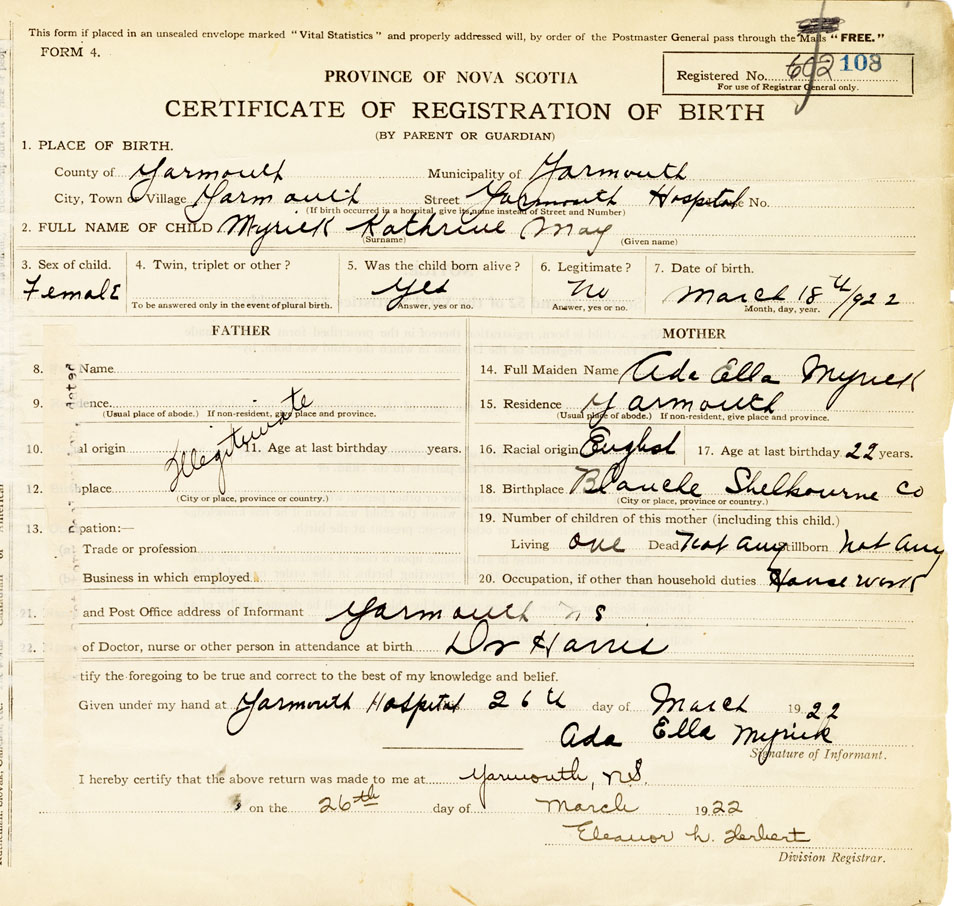 This form if placed in an unsealed envelope marked "Vital Statistics" and properly addressed will, by order of the Postmaster General pass through the Mails "FREE."
FORM 4.
PROVINCE OF NOVA SCOTIA
Registered No. 602 108
For use of Registrar General only.
CERTIFICATE OF REGISTRATION OF BIRTH
(BY PARENT OR GUARDIAN)
1. PLACE OF BIRTH.
County of Yarmouth Municipality of Yarmouth
City, Town or Village Yarmouth Street Yarmouth Hospital No.
(If birth occurred in a hospital, give its name instead of Street and Number)
2. FULL NAME OF CHILD Myrick Kathrine May
(Surname) (Given name)
3. Sex of child. 4. Twin, triplet or other? 5. Was the child born alive? 6. Legitimate? 7. Date of birth.
Female Yes No March 18th/922
To be answered only in the event of plural birth. Answer, yes or no. Answer, yes or no. Month, day, year.
FATHER MOTHER
8. Name 14. Full Maiden Name Ada Ella Myrick
9. dence. 15. Residence Yarmouth
(Usual place of abode.) If non-resident, give place and province. (Usual place of abode.) If non-resident, give place and province.
Illegitimate
10. al origin 11. Age at last birthday years. 16. Racial origin English 17. Age at last birthday 22 years.
12. place 18. Birthplace Blanche Shelbourne Co
(City or place, province or country.) (City or place, province or country.)
13. pation:— 19. Number of children of this mother (including this child.)
Trade or profession Living one Dead Not any Stillborn Not any
Business in which employed 20. Occupation, if other than household duties House work
21. and Post Office address of Informant Yarmouth N S
22. of Doctor, nurse or other person in attendance at birth Dr Harris
tify the foregoing to be true and correct to the best of my knowledge and belief.
Given under my hand at Yarmouth Hospital 26th day of March 1922
Ada Ella Myrick
Signature of Informant.
I hereby certify that the above return was made to me at Yarmouth, N.S.
on the 26th day of March 1922
Eleanor L. Herbert
Division Registrar.